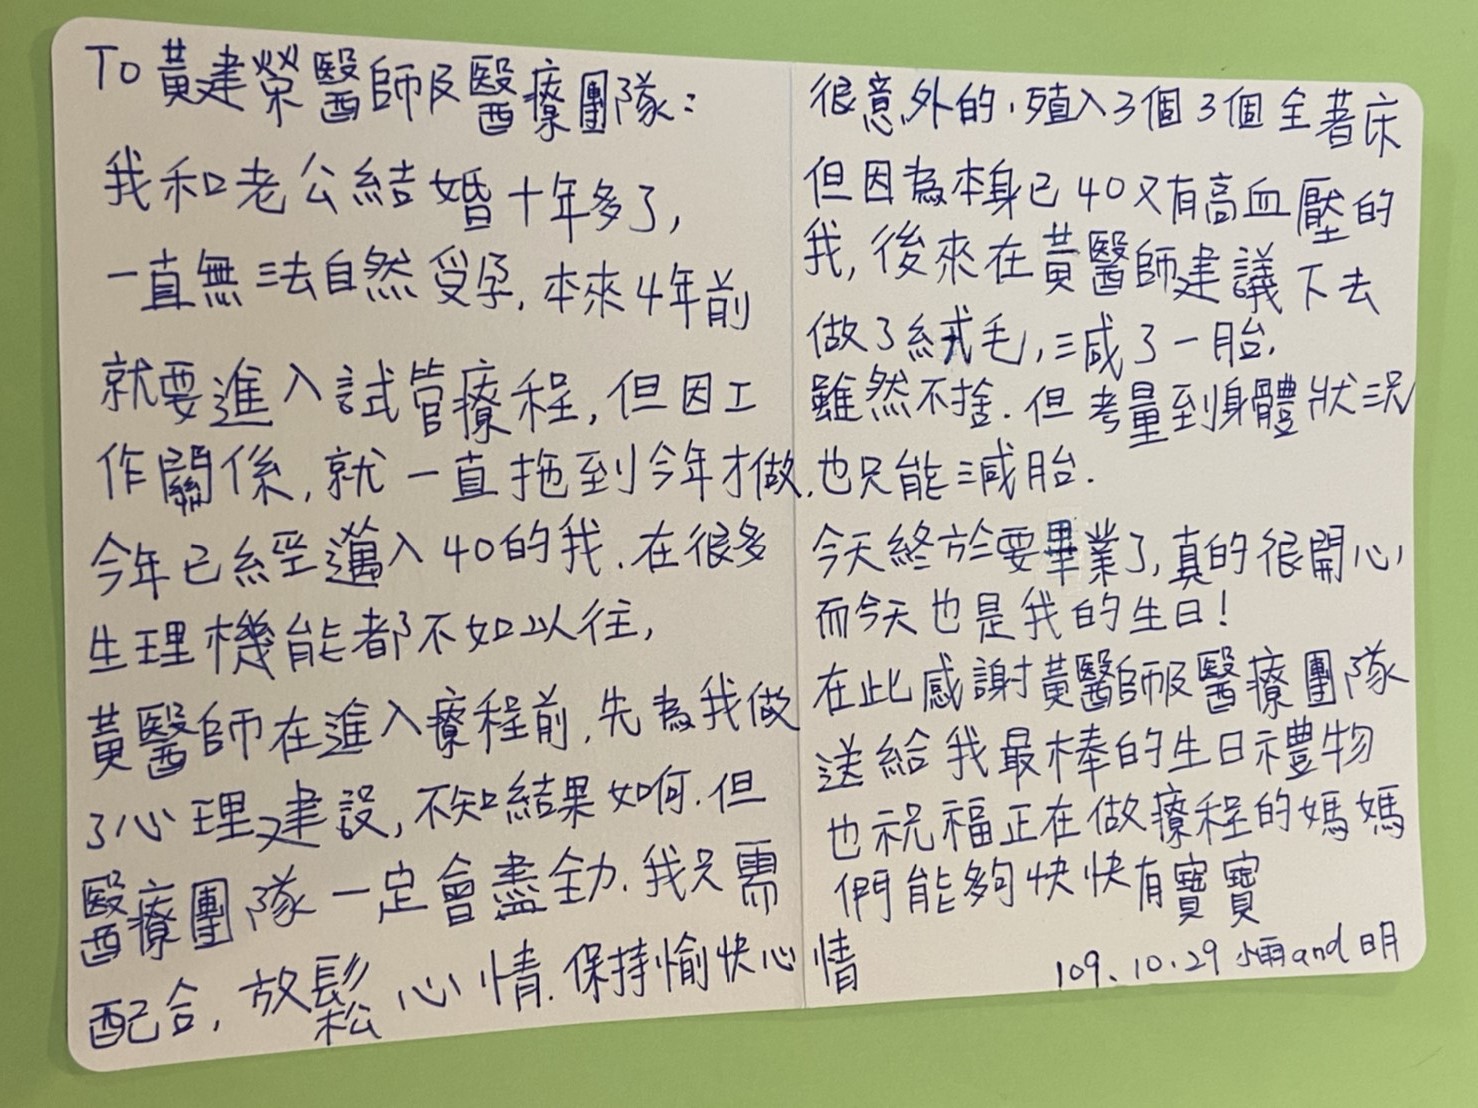 To 黃建榮醫師及醫療團隊：
我和老公結婚十年多了,
一直無法自然受孕, 本來4年前
就要進入試管療程, 但因工
作關係, 就一直拖到今年才做.
今年已經邁入40的我. 在很多
生理機能都不如以往,
黃醫師在進入療程前, 先為我做
了心理建設, 不知結果如何. 但
醫療團隊一定會盡全力. 我只需
配合, 放鬆心情. 保持愉快心情
很意外的, 殖入3個3個全著床
但因為本身已40又有高血壓的
我, 後來在黃醫師建議下去
做了絨毛, 減了一胎.
雖然不捨. 但考量到身體狀況
也只能減胎.
今天終於要畢業了, 真的很開心,
而今天也是我的生日!
在此感謝黃醫師及醫療團隊
送給我最棒的生日禮物
也祝福正在做療程的媽媽
們能夠快快有寶寶
109.10.29 小雨and明